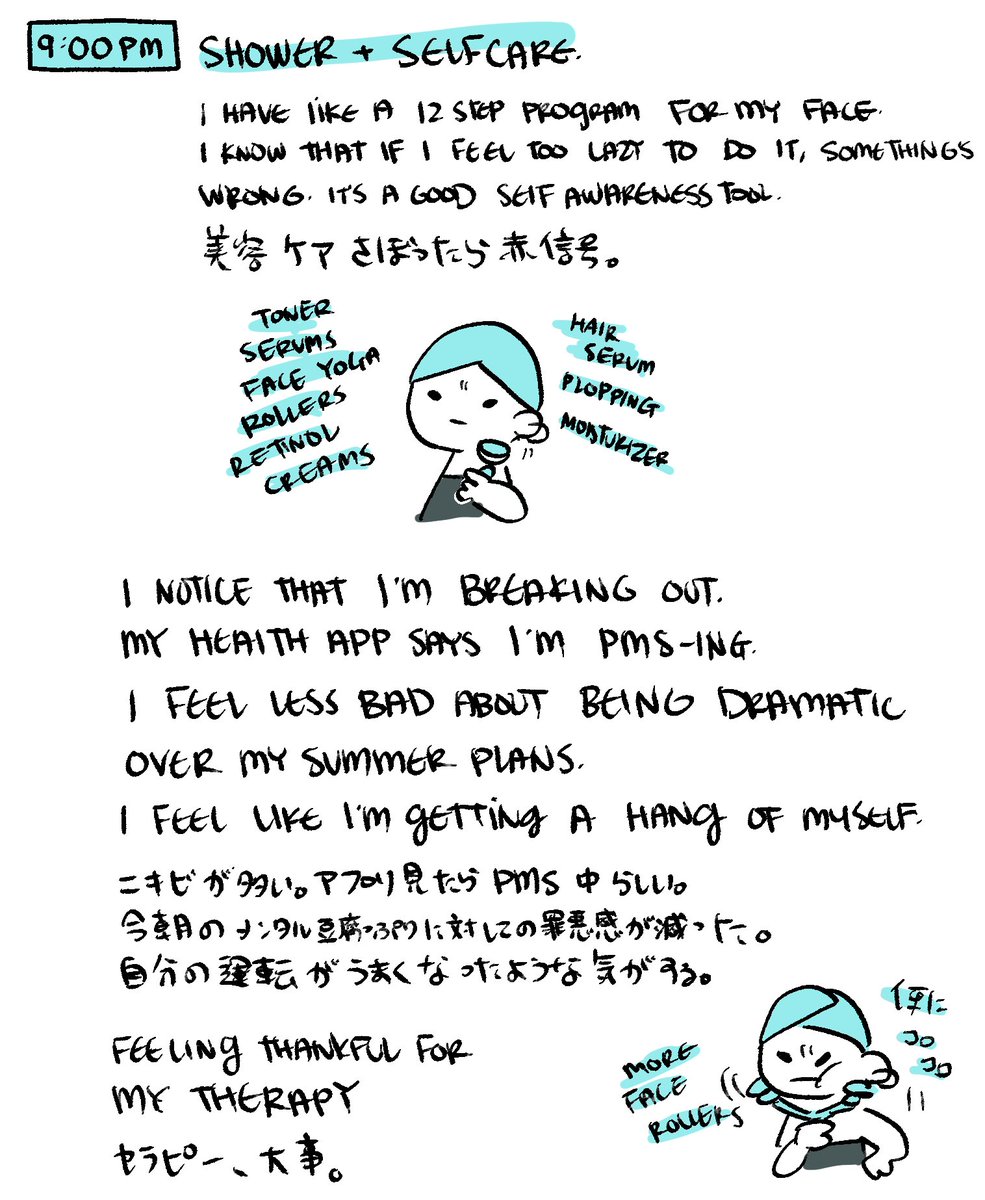 9:00PM
SHOWER + SELFCARE.
I HAVE LIKE A 12 STEP PROGRAM FOR MY FACE.
I KNOW THAT IF I FEEL TOO LAZY TO DO IT, SOMETHING'S
WRONG. IT'S A GOOD SELF AWARENESS TOOL.
美容ケアさぼったら赤信号。
TONER
SERUMS
FACE YOGA
ROLLERS
RETINOL
CREAMS
HAIR
SERUM
PLOPPING
MOISTURIZER
I NOTICE THAT I'M BREAKING OUT.
MY HEALTH APP SAYS I'M PMS-ING.
I FEEL LESS BAD ABOUT BEING DRAMATIC
OVER MY SUMMER PLANS.
I FEEL LIKE I'M GETTING A HANG OF MYSELF.
ニキビが多い。アプリ見たらPMS中らしい。
今朝のメンタル豆腐っぷりに対しての罪悪感が減った。
自分の運転がうまくなったような気がする。
FEELING THANKFUL FOR
MY THERAPY
セラピー、大事。
MORE
FACE
ROLLERS
更に
コロ
コロ